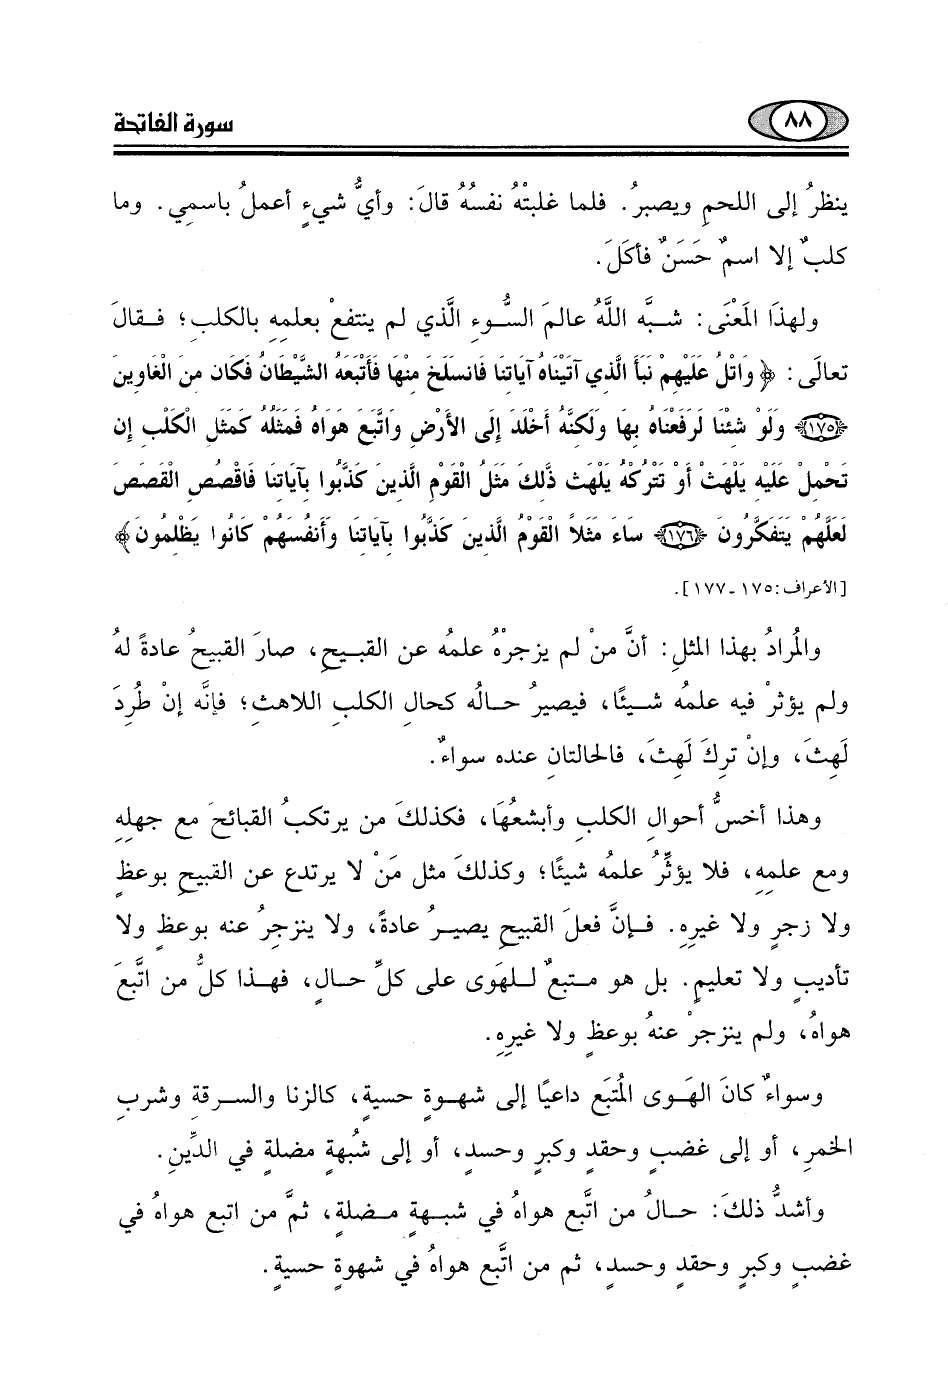 ٨٨
سورة الفاتحة
ينظرُ إلى اللحمِ ويصبرُ. فلما غلبتْهُ نفسُهُ قالَ: وأيُّ شيءٍ أعملُ باسمِي. وما
كلبٌ إلا اسمٌ حَسَنٌ فأكَلَ.
ولهذَا المَعْنَى: شبَّه اللَّهُ عالمَ السُّوءِ الَّذي لم ينتفعْ بعلمِهِ بالكلبِ؛ فقالَ
تعالَى: ﴿وَاتْلُ عَلَيْهِمْ نَبَأَ الَّذِي آتَيْنَاهُ آيَاتِنَا فَانسَلَخَ مِنْهَا فَأَتْبَعَهُ الشَّيْطَانُ فَكَانَ مِنَ الْغَاوِينَ
﴿١٧٥﴾ وَلَوْ شِئْنَا لَرَفَعْنَاهُ بِهَا وَلَكِنَّهُ أَخْلَدَ إِلَى الأَرْضِ وَاتَّبَعَ هَوَاهُ فَمَثَلُهُ كَمَثَلِ الْكَلْبِ إِن
تَحْمِلْ عَلَيْهِ يَلْهَثْ أَوْ تَتْرُكْهُ يَلْهَث ذَّلِكَ مَثَلُ الْقَوْمِ الَّذِينَ كَذَّبُوا بِآيَاتِنَا فَاقْصُصِ الْقَصَصَ
لَعَلَّهُمْ يَتَفَكَّرُونَ ﴿١٧٦﴾ سَاءَ مَثَلاً الْقَوْمُ الَّذِينَ كَذَّبُوا بِآيَاتِنَا وَأَنفُسَهُمْ كَانُوا يَظْلِمُونَ﴾
[الأعراف: ١٧٥ - ١٧٧].
والمُرادُ بهذا المثلِ: أنَّ منْ لم يزجرْهُ علمُهُ عن القبيحِ، صارَ القبيحُ عادةً لهُ
ولم يؤثرْ فيه علمُه شيئًا، فيصيرُ حالُه كحالِ الكلبِ اللاهثِ؛ فإنَّه إنْ طُرِدَ
لَهِثَ، وإنْ تركَ لَهثَ، فالحالتانِ عنده سواءٌ.
وهذا أخسُّ أحوالِ الكلبِ وأبشعُهَا، فكذلكَ من يرتكبُ القبائحَ مع جهلِهِ
ومع علمِهِ، فلا يؤثِّرُ علمُه شيئًا؛ وكذلكَ مثل مَنْ لا يرتدع عن القبيحِ بوعظٍ
ولا زجرٍ ولا غيرِهِ. فإنَّ فعلَ القبيحِ يصيرُ عادةً، ولا ينزجرُ عنه بوعظٍ ولا
تأديبٍ ولا تعليمٍ. بل هو متبعٌ للهوَى على كلِّ حالٍ، فهذا كلُّ من اتَّبعَ
هواهُ، ولم ينزجرْ عنهُ بوعظٍ ولا غيرِهِ.
وسواءٌ كانَ الهَوى المُتبَع داعيًا إلى شهوةٍ حسيةٍ، كالزنا والسرقةِ وشربِ
الخمرِ، أو إلى غضبٍ وحقدٍ وكبرٍ وحسدٍ، أو إلى شُبهةٍ مضلةٍ في الدِّينِ.
وأشدُّ ذلكَ: حالُ من اتَّبع هواهُ في شبهةٍ مضلةٍ، ثمَّ من اتبع هواهُ في
غضبٍ وكبرٍ وحقدٍ وحسدٍ، ثم من اتَّبع هواهُ في شهوةٍ حسيةٍ.